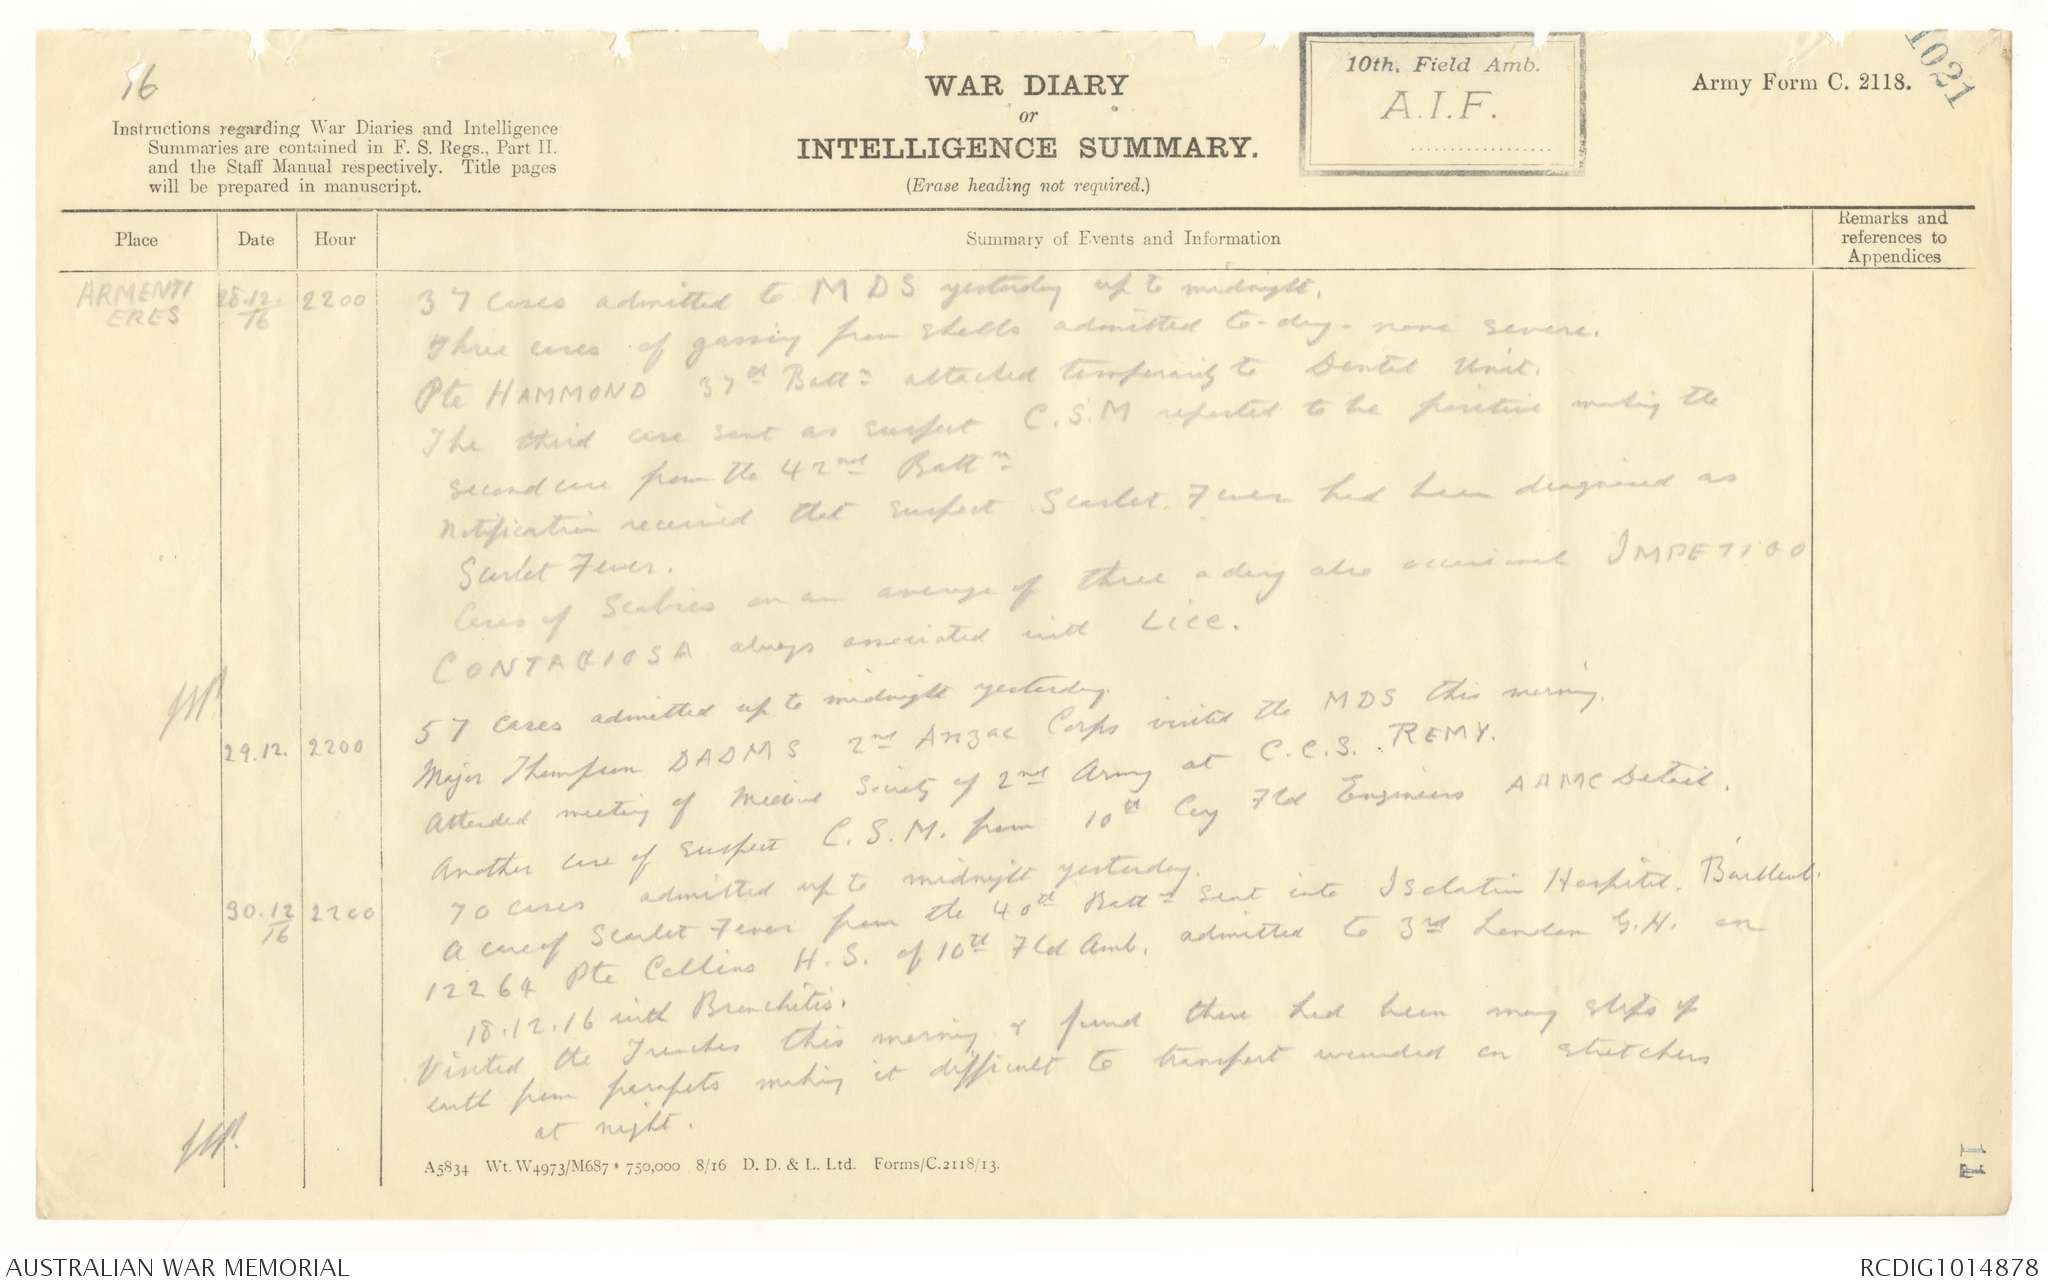 16
WAR DIARY
or
INTELLIGENCE SUMMARY.
(Erase heading not required.)
Instructions regarding War Diaries and Intelligence
Summaries are contained in F. S. Regs., Part II.
and the Staff Manual respectively. Title pages
will be prepared in manuscript.
10th. Field Amb.
A.I.F.
Army Form C. 2118.
1021
Place
Date
Hour
Summary of Events and Information
Remarks and
references to
Appendices
ARMENTI
ERES
28.12.
16
2200
37 cases admitted to MDS yesterday up to midnight.
Three cases of gassing from shells admitted to-day - none severe.
Pte HAMMOND 37th Battn attached temporarily to Dental Unit.
The third case sent as suspect C.S.M reported to be positive making the
second case from the 42nd Battn
Notification received that suspect Scarlet Fever had been diagnosed as
Scarlet Fever.
Cases of Scabies on an average of three a day also occasional IMPETIGO
CONTAGIOSA always associated with Lice.
29.12.
2200
57 cases admitted up to midnight yesterday.
Major Thompson DADMS 2nd Anzac Corps visited the MDS this morning.
Attended meeting of Medical Society of 2nd Army at C.C.S. REMY.
Another case of suspect C.S.M. from 10th Coy Fld Engineers AAMC Detail.
30.12
16
2200
70 cases admitted up to midnight yesterday.
A case of Scarlet Fever from the 40th Battn sent into Isolation Hospital. Bailleul.
12264 Pte Collins H.S. of 10th Fld Amb. admitted to 3rd London G.H. on
18.12.16 with Bronchitis.
Visited the Trenches this morning & found there had been many slips of
earth from parapets making it difficult to transport wounded on stretchers
at night.
A5834 Wt. W4973/M687 750,000 8/16 D. D. & L. Ltd. Forms/C.2118/13.
11
AUSTRALIAN WAR MEMORIAL
RCDIG1014878